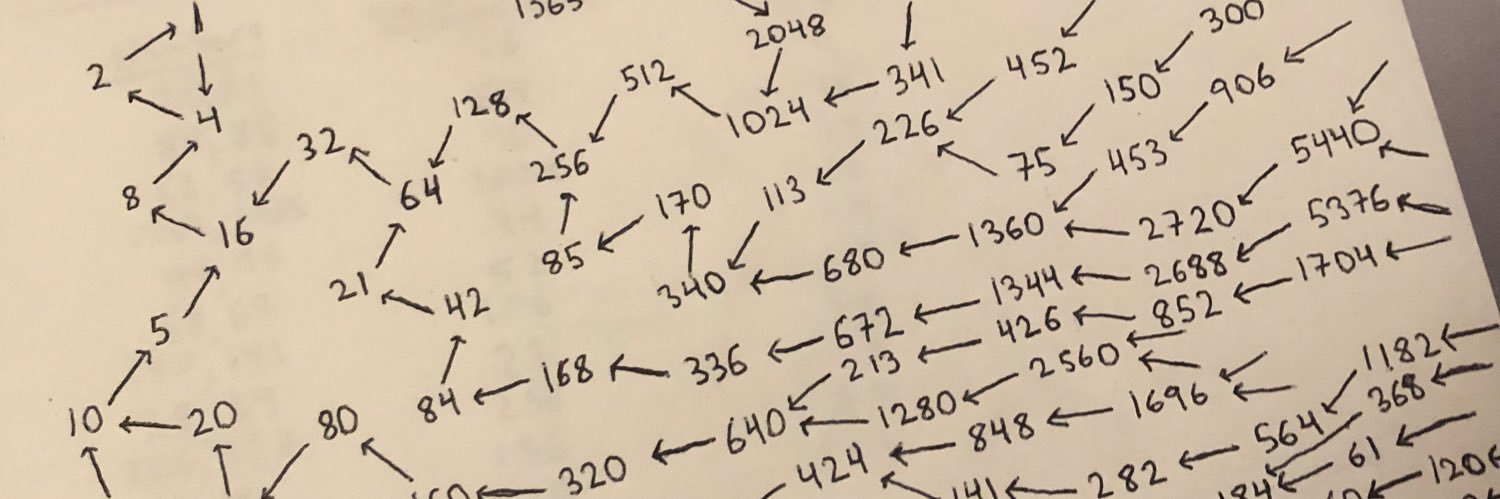 1365
1
2048
300
2
512
341
452
150
906
4
128
1024
226
75
453
5440
32
256
8
64
170
113
1360
2720
5376
16
85
340
680
1344
2688
1704
21
42
672
426
852
5
168
336
213
2560
1182
10
20
80
84
640
1280
848
1696
564
368
320
424
141
282
184
61
120
160